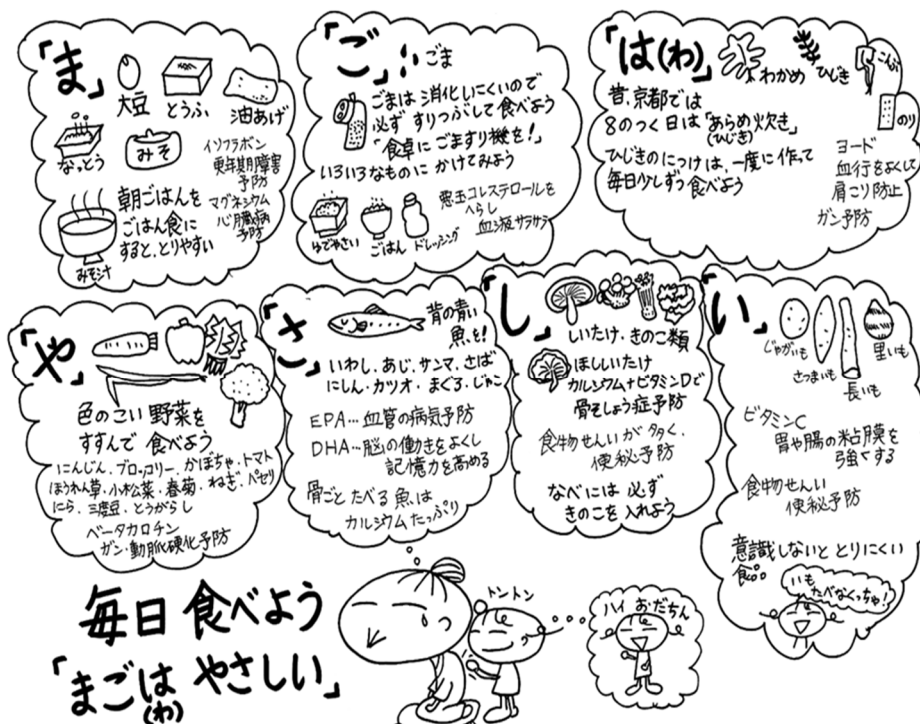 「ま」
大豆
とうふ
油あげ
なっとう
みそ
イソフラボン
更年期障害
予防
マグネシウム
心臓病
予防
朝ごはんを
ごはん食に
すると、とりやすい
みそ汁
「ご」
ごま
ごまは 消化しにくいので
必ず すりつぶして食べよう
「食卓に ごますり機を!」
いろいろなものに かけてみよう
悪玉コレステロールを
へらし
血液サラサラ
ゆでやさい
ごはん
ドレッシング
「は(わ)」
わかめ
ひじき
こんぶ
のり
昔、京都では
8のつく日は「あらめ炊き」
(ひじき)
ひじきのにつけは、一度に作って
毎日少しずつ食べよう
ヨード
血行をよくして
肩こり防止
ガン予防
「や」
色のこい 野菜を
すすんで 食べよう
にんじん、ブロッコリー、かぼちゃ、トマト
ほうれん草、小松菜、春菊、ねぎ、パセリ
にら、三度豆、とうがらし
ベータカロチン
ガン・動脈硬化予防
「さ」
背の青い
魚を!
いわし、あじ、サンマ、さば
にしん・カツオ・まぐろ・じゃこ
EPA…血管の病気予防
DHA…脳の働きをよくし
記憶力を高める
骨ごと たべる 魚は
カルシウム たっぷり
「し」
しいたけ・きのこ類
ほししいたけ
カルシウム+ビタミンDで
骨そしょう症予防
食物せんいが 多く、
便秘予防
なべには 必ず
きのこを 入れよう
「い」
じゃがいも
さつまいも
長いも
里いも
ビタミンC
胃や腸の粘膜を
強くする
食物せんい
便秘予防
意識しないと とりにくい
食品
いも
たべなくっちゃ!
毎日 食べよう
「まごは やさしい」
(わ)
トントン
ハイ おだちん